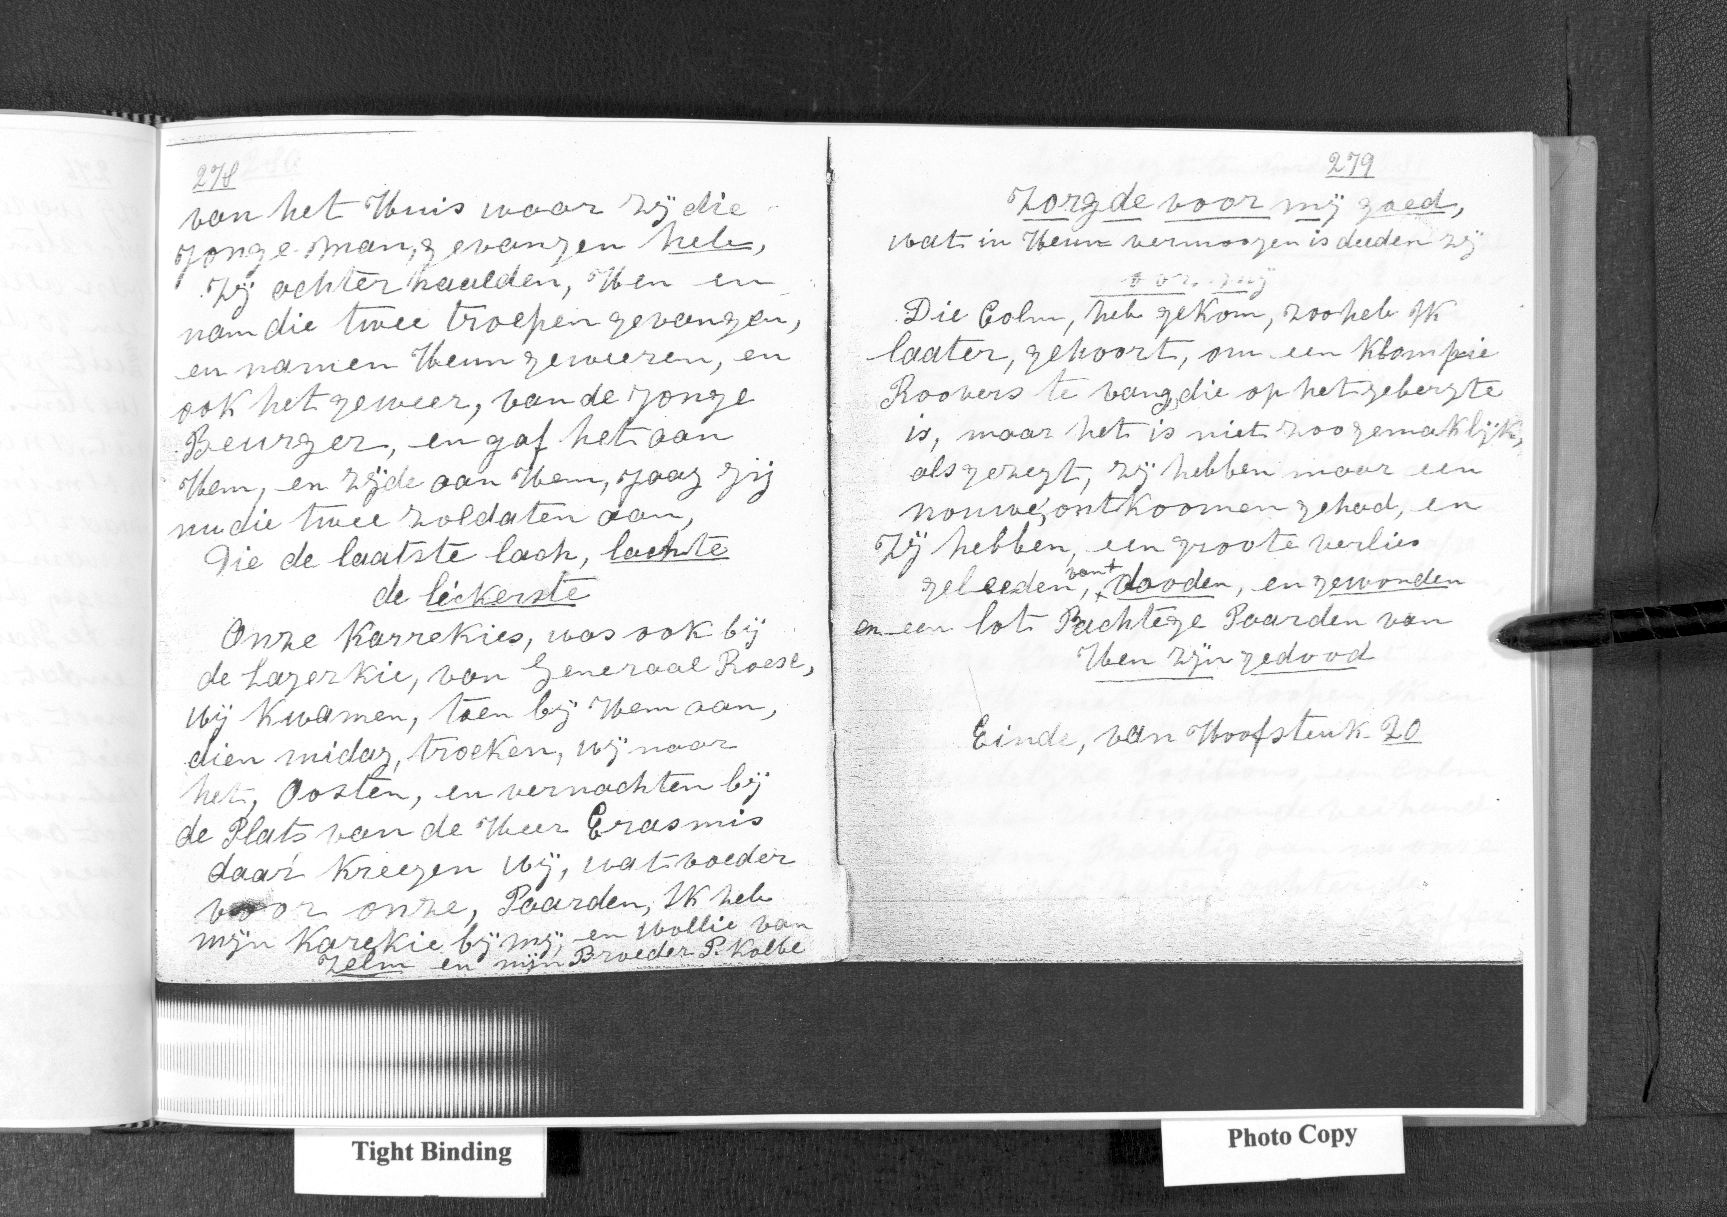 278
van het Huis waar zij die
jonge man, gevangen heb,
zij achterhaalden, Hen en
nam die twee troepen gevangen,
en namen Heun geweeren, en
ook het geweer, van de jonge
Beurger, en gaf het aan
Hem, en zijde aan Hem, jaag jij
nu die twee zoldaten aan,
Die de laatste lach, lachte
de leikerste
Onze Karrekies, was ook bij
de Lagerkie, van Generaal Roese,
wij kwamen, toen bij Hem aan,
dien midag, trocken, wij naar
het, Oosten, en vernachten bij
de Plats van de Heer Erasmis
daar kreegen wij, wat voeder
voor onze, Paarden, Ik heb
mijn Karekie bij mij, en Wollie van
Zelm en mijn Broeder P. Kolbe
279
Zorgde voor mij goed,
wat in Heun vermoogen is deeden zij
voor mij
Die Colm, heb gekom, zoo heb Ik
laater, gehoort, om een Klompie
Roovers te vang, die op het gebergte
is, maar het is niet zoo gemaklijk,
als gezegt, zij hebben maar een
nouwe, ontkoomen gehad, en
Zij hebben, een groote verlies
geleeden, want dooden, en gewonden
en een lot Pachtege Paarden van
Hen zijn gedood
Einde, van Hoofsteuk 20
Tight Binding
Photo Copy